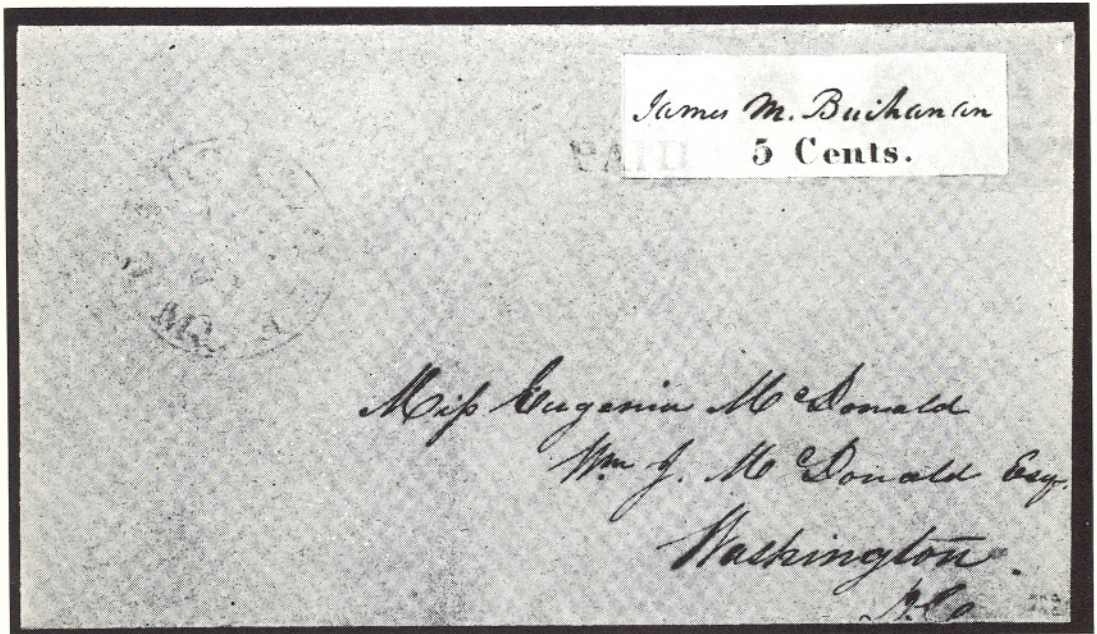 James M. Buchanan
5 Cents.
PAID
MD
Miss Eugenia McDonald
Wm J. McDonald Esq.
Washington.
D.C.